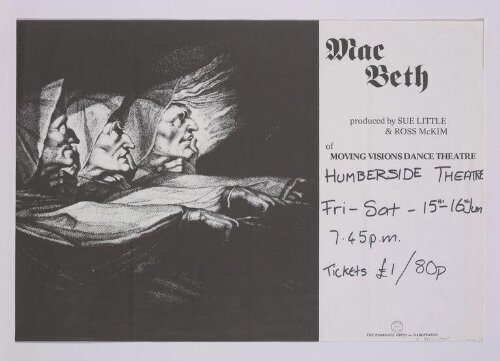 Mac
Beth
produced by SUE LITTLE
& ROSS McKIM
of
MOVING VISIONS DANCE THEATRE
HUMBERSIDE THEATRE
Fri - Sat - 15th - 16th Jun
7.45p.m.
Tickets £1/80p
THE PARKGATE PRESS — DARLINGTON